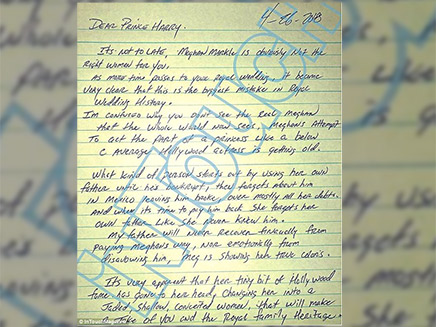 4-26-2018
DEAR PRINCE HARRY,
IT'S NOT TO LATE, MEGHAN MARKLE IS OBVIOUSLY NOT THE
RIGHT WOMAN FOR YOU.
AS MORE TIME PASSES TO YOUR ROYAL WEDDING, IT BECAME
VERY CLEAR THAT THIS IS THE BIGGEST MISTAKE IN ROYAL
WEDDING HISTORY.
I'M CONFUSED WHY YOU DON'T SEE THE REAL MEGHAN
THAT THE WHOLE WORLD NOW SEES. MEGHAN'S ATTEMPT
TO ACT THE PART OF A PRINCESS LIKE A BELOW
C AVERAGE HOLLYWOOD ACTRESS IS GETTING OLD.
WHAT KIND OF PERSON STARTS OUT BY USING HER OWN
FATHER UNTIL HE'S BANKRUPT, THEN FORGETS ABOUT HIM
IN MEXICO LEAVING HIM BROKE, OVER MOSTLY ALL HER DEBTS.
AND WHEN IT'S TIME TO PAY HIM BACK SHE FORGETS HER
OWN FATHER LIKE SHE NEVER KNEW HIM.
MY FATHER WILL NEVER RECOVER FINANCIALLY FROM
PAYING MEGHAN'S WAY, NOR EMOTIONALLY FROM
DISAVOWING HIM, MEG IS SHOWING HER TRUE COLORS.
IT'S VERY APPARENT THAT HER TINY BIT OF HOLLYWOOD
FAME HAS GONE TO HER HEAD, CHANGING HER INTO A
JADED, SHALLOW, CONCEITED WOMAN, THAT WILL MAKE
A JOKE OF YOU AND THE ROYAL FAMILY HERITAGE.
InTouch